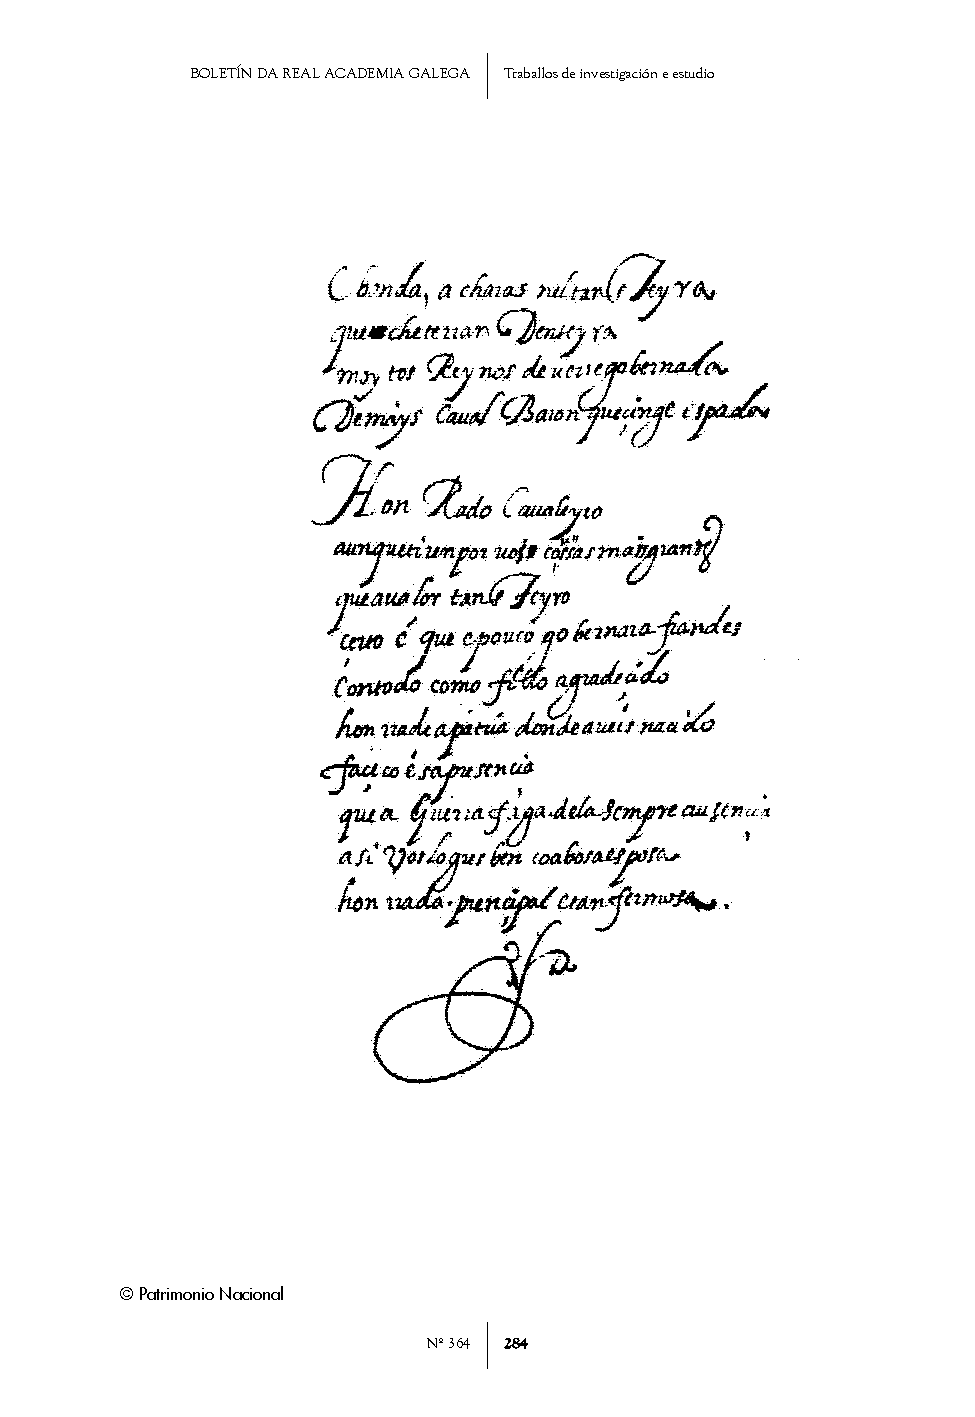 BOLETÍN DA REAL ACADEMIA GALEGA
Traballos de investigación e estudio
a charas
que che
moytos Reynos de gobernada
Demays Baron que çinge espada
Hon Rado Caualeyro
aunque por cossas mais grandes
que aualor tan
certo é que é pouco gobernara frandes
Contodo como fillo agradeçido
honrrade apatria donde aueis naçido
é sa presencia
que a Guerra figa dela sempre ausencia
asi Vos logres ben coabosa esposa
honrrada prencipal e tan fermosa.
© Patrimonio Nacional
Nº 364
284